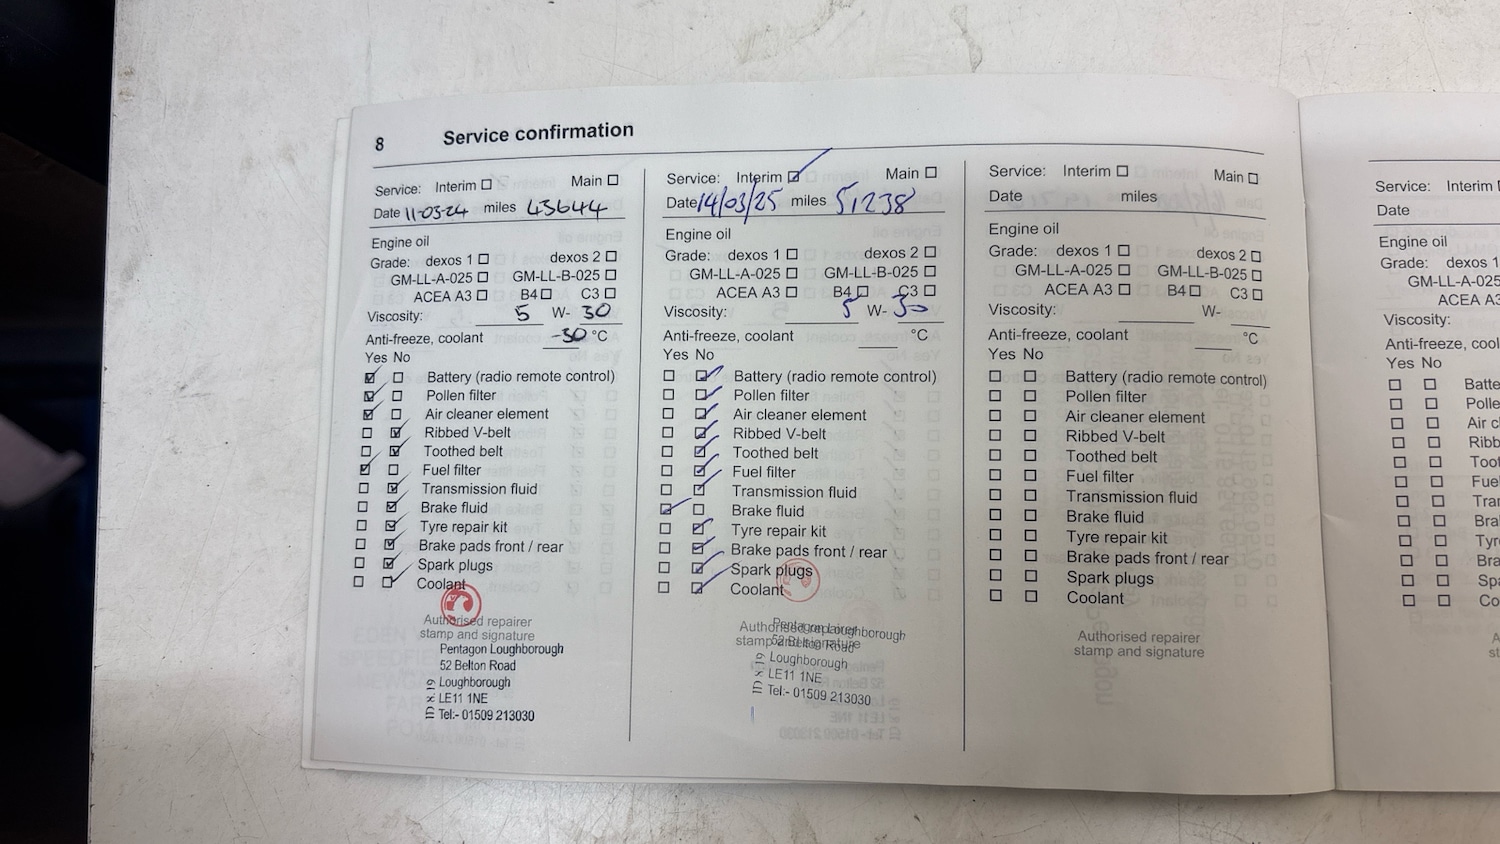 8 Service confirmation
Service: Interim ☐ Main ☐
Date 11-03-24 miles 43644
Engine oil
Grade: dexos 1 ☐ dexos 2 ☐
GM-LL-A-025 ☐ GM-LL-B-025 ☐
ACEA A3 ☐ B4 ☐ C3 ☐
Viscosity: 5 W- 30
Anti-freeze, coolant -30 °C
Yes No
☑ ☐ Battery (radio remote control)
☑ ☐ Pollen filter
☑ ☐ Air cleaner element
☐ ☑ Ribbed V-belt
☐ ☑ Toothed belt
☑ ☐ Fuel filter
☐ ☑ Transmission fluid
☐ ☑ Brake fluid
☐ ☑ Tyre repair kit
☐ ☑ Brake pads front / rear
☐ ☑ Spark plugs
☐ ☑ Coolant
Authorised repairer
stamp and signature
Pentagon Loughborough
52 Belton Road
Loughborough
LE11 1NE
Tel:- 01509 213030
Service: Interim ☑ Main ☐
Date 14/03/25 miles 51238
Engine oil
Grade: dexos 1 ☐ dexos 2 ☐
GM-LL-A-025 ☐ GM-LL-B-025 ☐
ACEA A3 ☐ B4 ☐ C3 ☐
Viscosity: 5 W- 30
Anti-freeze, coolant °C
Yes No
☐ ☑ Battery (radio remote control)
☐ ☑ Pollen filter
☐ ☑ Air cleaner element
☐ ☑ Ribbed V-belt
☐ ☑ Toothed belt
☐ ☑ Fuel filter
☐ ☑ Transmission fluid
☑ ☐ Brake fluid
☐ ☑ Tyre repair kit
☐ ☑ Brake pads front / rear
☐ ☑ Spark plugs
☐ ☑ Coolant
Authorised repairer
stamp and signature
Pentagon Loughborough
52 Belton Road
Loughborough
LE11 1NE
Tel:- 01509 213030
Service: Interim ☐ Main ☐
Date miles
Engine oil
Grade: dexos 1 ☐ dexos 2 ☐
GM-LL-A-025 ☐ GM-LL-B-025 ☐
ACEA A3 ☐ B4 ☐ C3 ☐
Viscosity: W-
Anti-freeze, coolant °C
Yes No
☐ ☐ Battery (radio remote control)
☐ ☐ Pollen filter
☐ ☐ Air cleaner element
☐ ☐ Ribbed V-belt
☐ ☐ Toothed belt
☐ ☐ Fuel filter
☐ ☐ Transmission fluid
☐ ☐ Brake fluid
☐ ☐ Tyre repair kit
☐ ☐ Brake pads front / rear
☐ ☐ Spark plugs
☐ ☐ Coolant
Authorised repairer
stamp and signature
Service: Interim
Date
Engine oil
Grade: dexos 1
GM-LL-A-025
ACEA A3
Viscosity:
Anti-freeze, cool
Yes No
☐ ☐ Batte
☐ ☐ Polle
☐ ☐ Air c
☐ ☐ Ribb
☐ ☐ Toot
☐ ☐ Fue
☐ ☐ Trar
☐ ☐ Bra
☐ ☐ Tyr
☐ ☐ Bra
☐ ☐ Spa
☐ ☐ Co